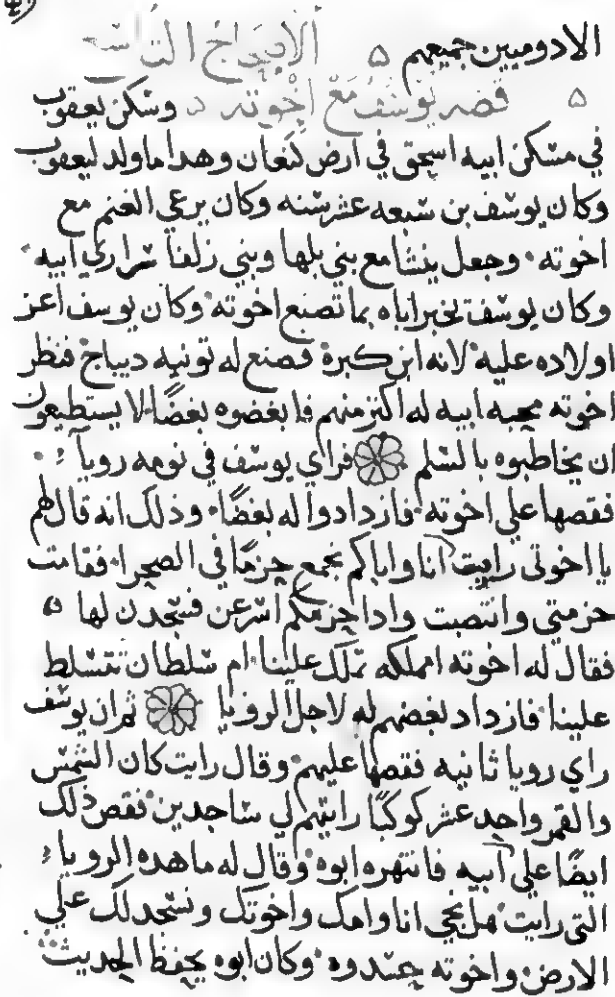 الادوميين جميعهم ۵ الاصحاح التاسع
۵ قصه يوسف مع اخوته د وسكن يعقوب
في مسكن ابيه اسحق في ارض كنعان وهدا ما ولد ليعقوب
وكان يوسف بن سبعه عشر سنه وكان يرعي الغنم مع
اخوته وجعل ينشا مع بني بلها وبني زلفا سراري ابيه
وكان يوسف يخبر اباه بما تصنع اخوته وكان يوسف اعز
اولاده عليه لانه ابن كبره فصنع له تونيه ديباج فنظر
اخوته محبه ابيه له اكثر منهم فابغضوه بغضًا لا يستطيعون
ان يخاطبوه بالسلم فراي يوسف في نومه رويا
فقصها علي اخوته فازدادوا له بغضًا وذلك انه قال لهم
يا اخوتي رايت انا واياكم نجمع حزمًا في الصحرا فقامت
حزمتي وانتصبت وادا حزمكم اسرعن فسجدن لها ۵
فقال له اخوته املكه تملك علينا ام سلطان تتسلط
علينا فازداد بغضهم له لاجل الرويا ثم ان يوسف
راي رويا ثانيه فقصها عليهم وقال رايت كان الشمس
والقمر واحد عشر كوكبًا رايتهم لي ساجدين فقص ذلك
ايضًا علي ابيه فانتهره ابوه وقال له ما هده الرويا
التي رايت هل يجي انا وامك واخوتك ونسجد لك علي
الارض واخوته حسدوه وكان ابوه يحفظ الحديث